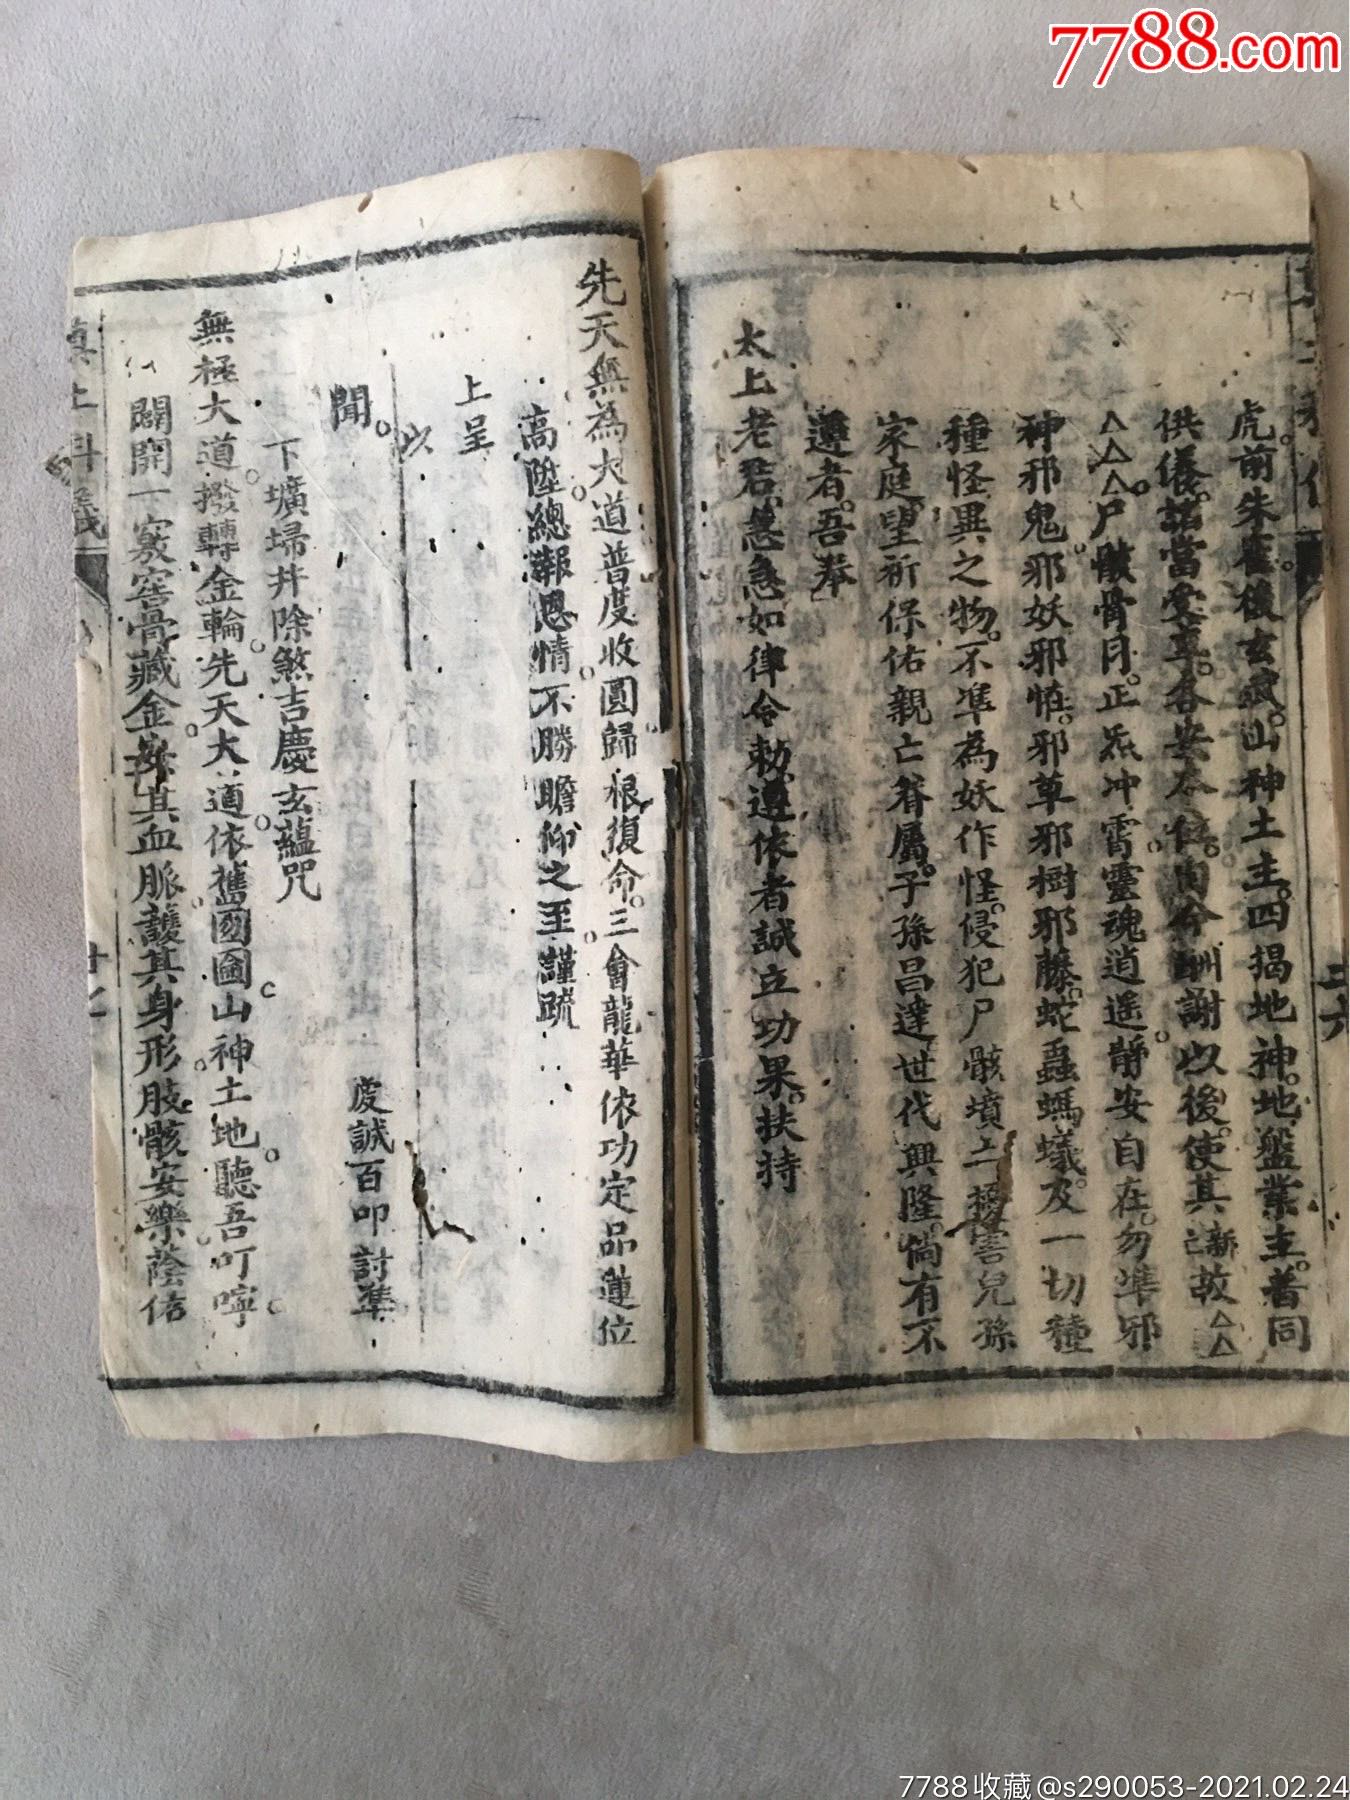 7788.com
虎。前朱雀。後玄武。山神土主。四揭地神。地盤業主。普同
供儀。諒當受享。各安本位。自今酬謝以後。使其新故△△
△△△尸骸骨月。正炁冲霄。靈魂逍遥。靜安自在。勿準邪
神邪鬼邪妖邪怪。邪草邪樹邪藤。蛇蟲螞蟻。及一切種
種怪異之物。不準為妖作怪。侵犯尸骸墳土。擾害兒孫
家庭。望祈保佑親亡眷屬。子孫昌達。世代興隆。倘有不
遵者。吾奉
太上老君。急急如律令勅。遵依者誠立功果。扶持
先天無為大道。普度收圓。歸根復命。三會龍華。依功定品。蓮位
高陞。總報恩情。不勝瞻仰之至。謹疏
上呈
以
聞。 虔誠百叩討準。
下壙埽井除煞吉慶玄蘊咒
無極大道。撥轉金輪。先天大道。依舊國圖。山神土地。聽吾叮嚀。
闢開一竅。窖骨藏金。安其血脈。護其身形。肢骸安樂。蔭佑
真土科儀
廿七
二六
7788收藏@s290053-2021.02.24